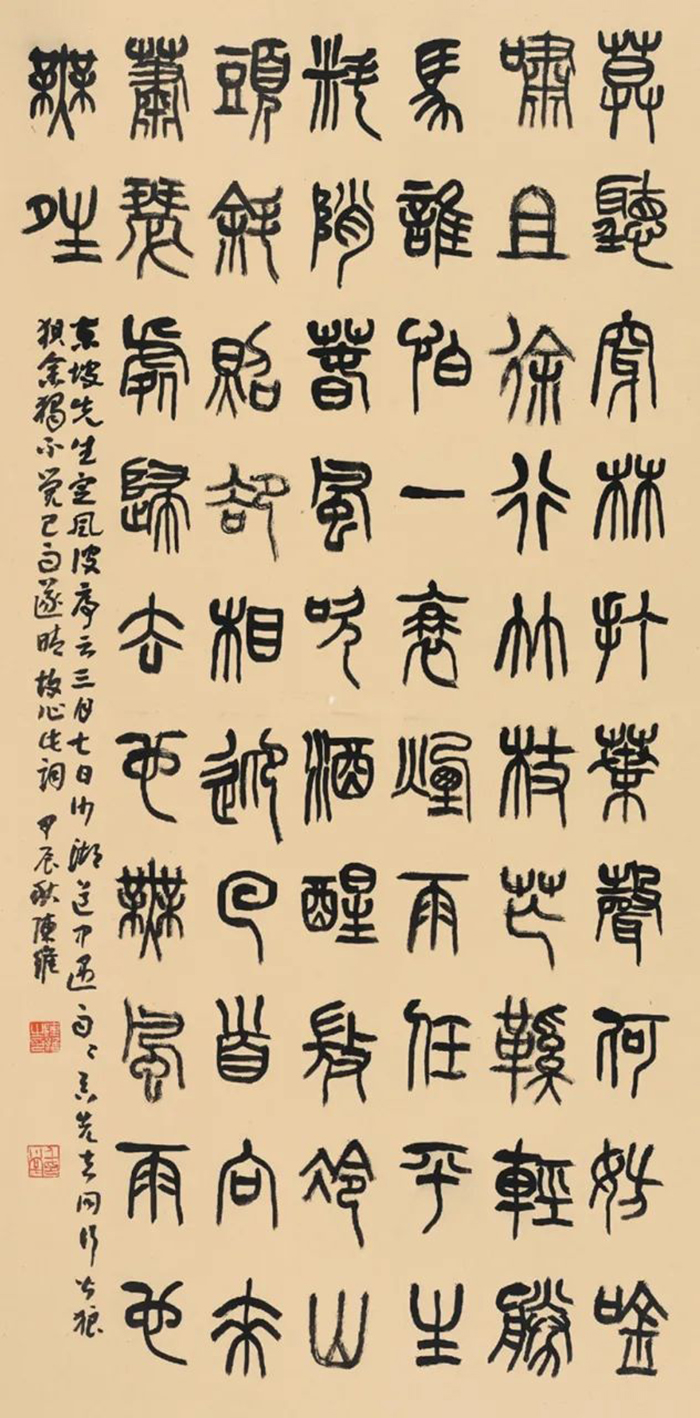 莫聽穿林打葉聲何妨唫
嘯且徐行竹杖芒鞵輕勝
馬誰怕一蓑煙雨任平生
料陗春風吹酒醒微冷山
頭斜照卻相迎回首向來
蕭瑟處歸去也無風雨也
無晴
東坡先生定風波序云三月七日沙湖道中遇雨〻具先去同行皆狼
狽余獨不覺已而遂晴故作此詞 甲辰秋陳